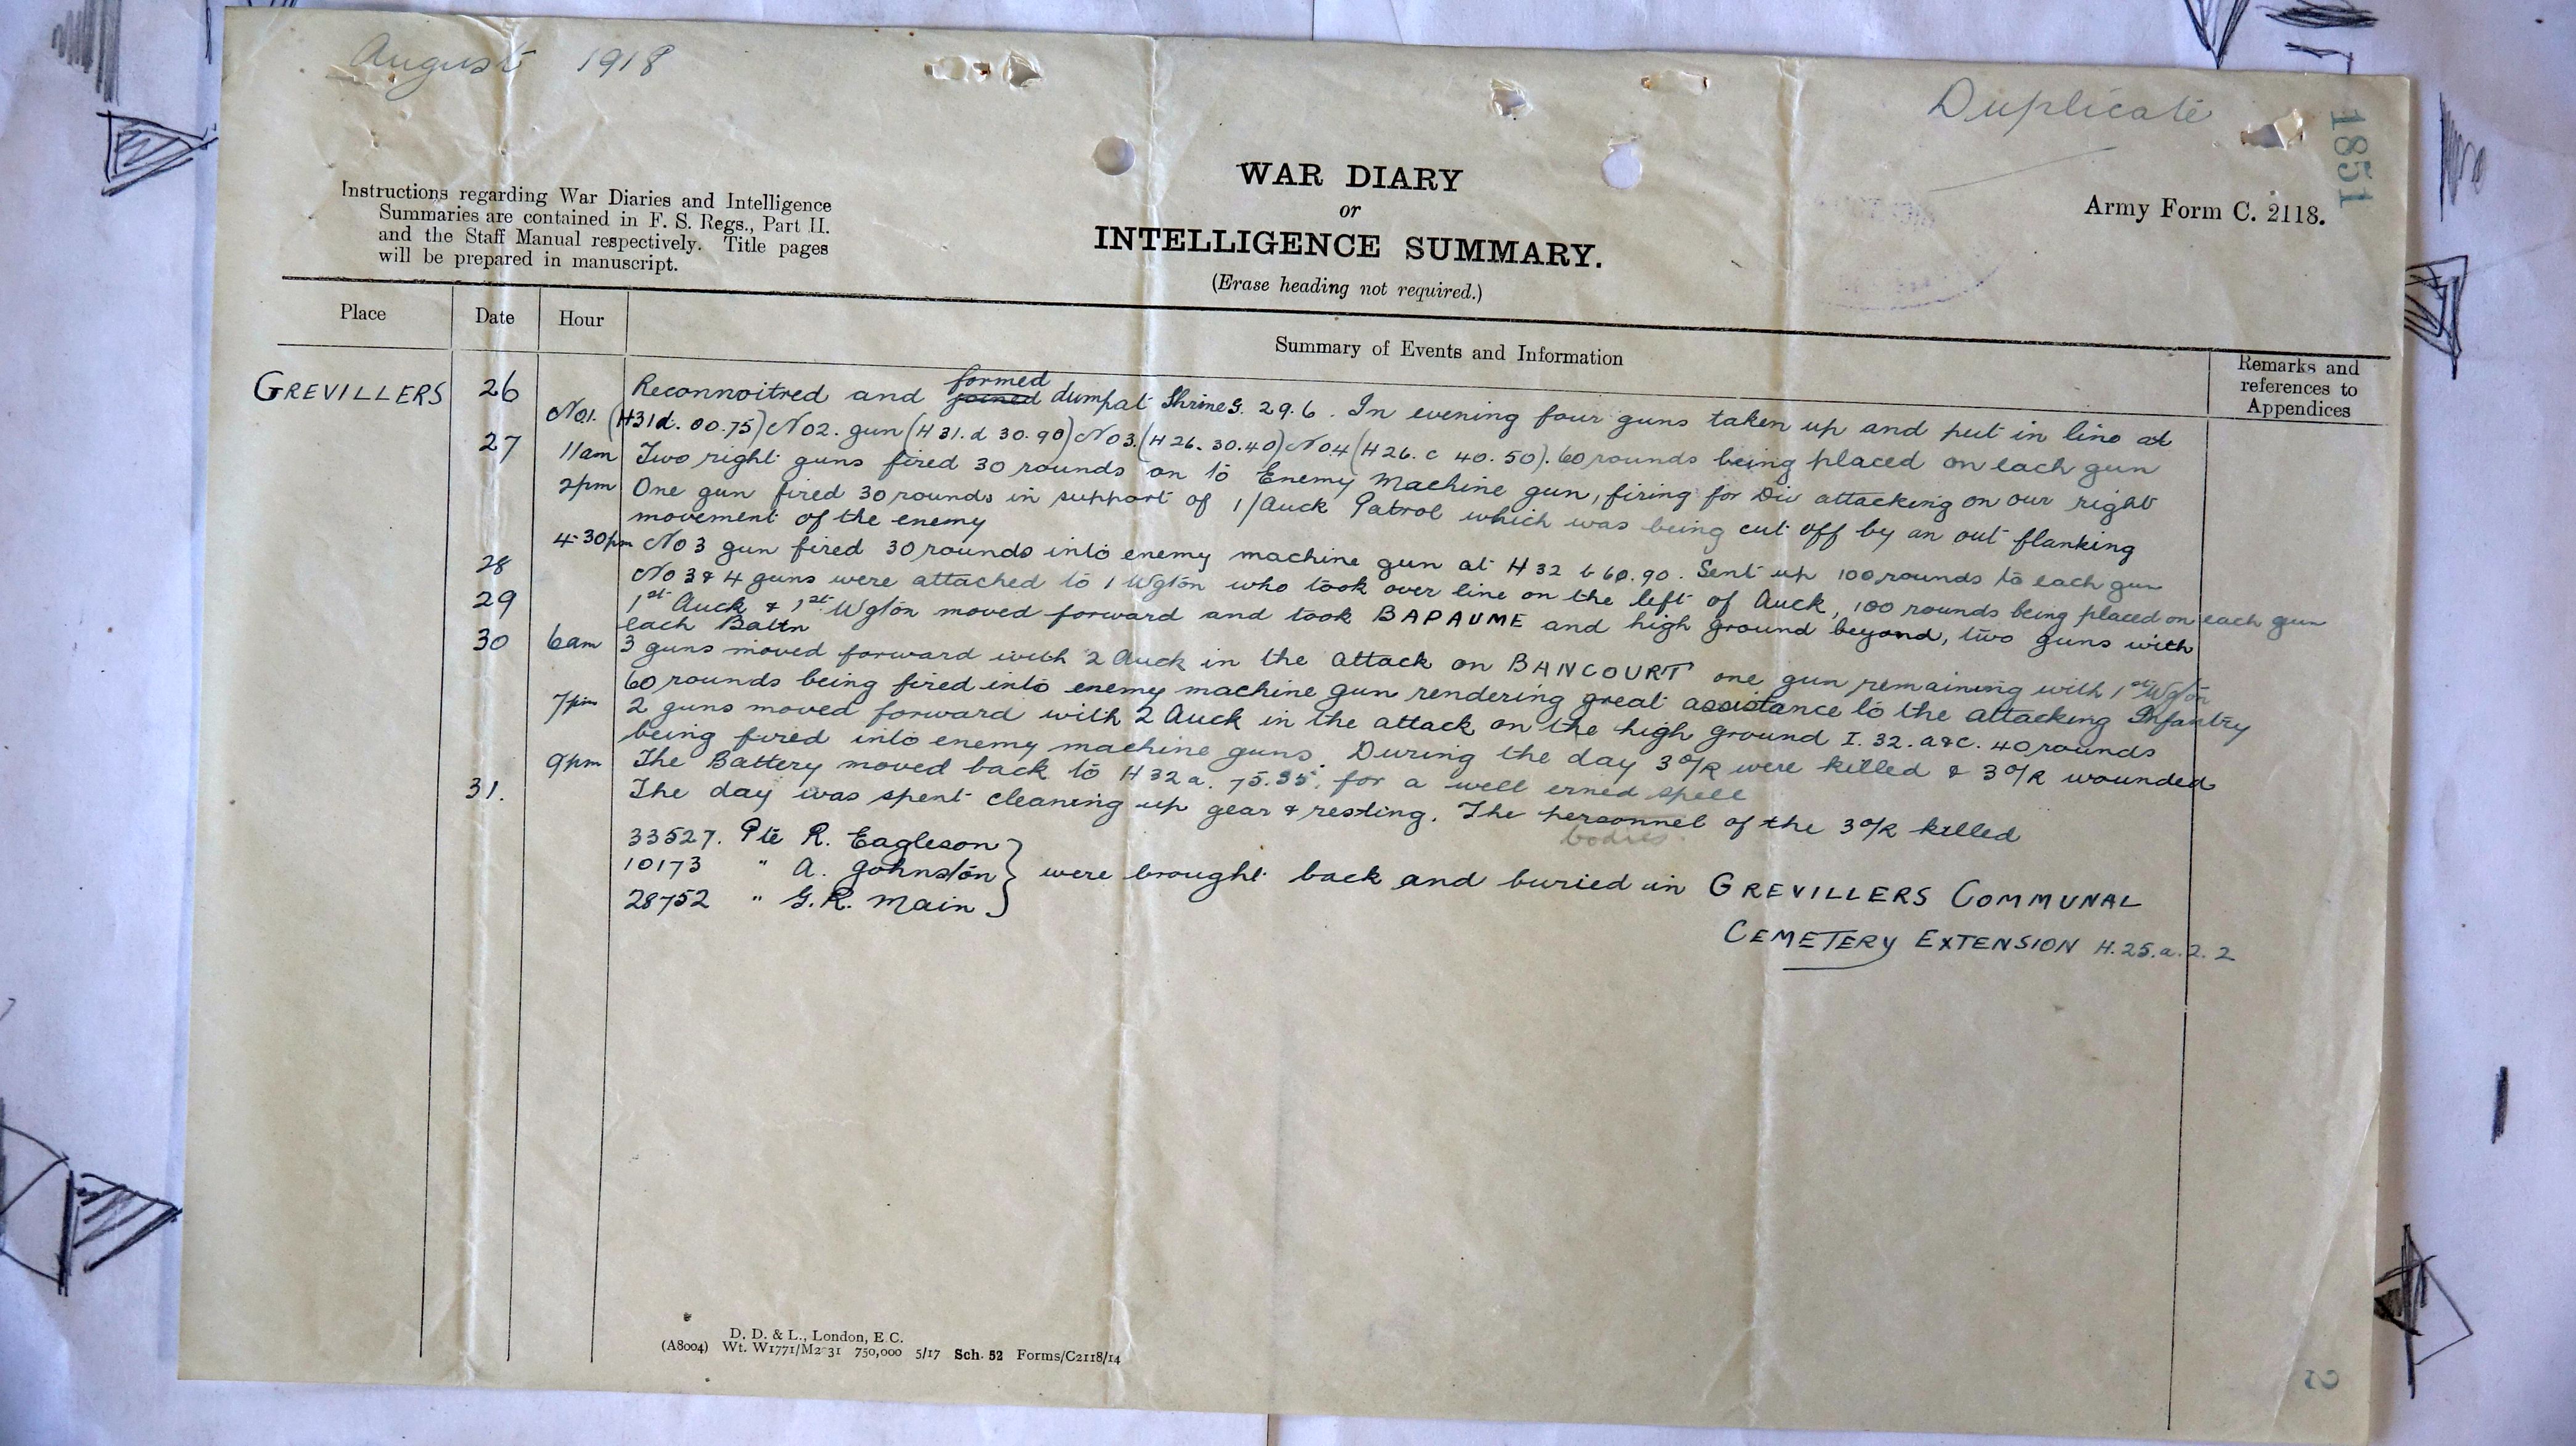 August 1918
Duplicate
1851
Instructions regarding War Diaries and Intelligence
Summaries are contained in F. S. Regs., Part II.
and the Staff Manual respectively. Title pages
will be prepared in manuscript.
WAR DIARY
or
INTELLIGENCE SUMMARY.
(Erase heading not required.)
Army Form C. 2118.
Place Date Hour Summary of Events and Information Remarks and
references to
Appendices
GREVILLERS 26 Reconnoitred and joined formed dump at Shrine G. 29.6. In evening four guns taken up and put in line at
No1. (H31d. 00.75) No2. gun (H31.d 30.90) No3. (H26. 30.40) No4 (H26.c 40.50). 60 rounds being placed on each gun
27 11am Two right guns fired 30 rounds on to Enemy Machine gun, firing for Div attacking on our right
2pm One gun fired 30 rounds in support of 1/Auck Patrol which was being cut off by an out flanking
movement of the enemy
4-30pm No3 gun fired 30 rounds into enemy machine gun at H32 b 60.90. Sent up 100 rounds to each gun
28 No 3 & 4 guns were attached to 1 Wgton who took over line on the left of Auck, 100 rounds being placed on each gun
29 1st Auck & 1st Wgton moved forward and took BAPAUME and high ground beyond, two guns with
each Battn
30 6am 3 guns moved forward with 2 Auck in the attack on BANCOURT one gun remaining with 1st Wgton
60 rounds being fired into enemy machine gun rendering great assistance to the attacking Infantry
7pm 2 guns moved forward with 2 Auck in the attack on the high ground I.32.a&c. 40 rounds
being fired into enemy machine guns. During the day 3 O/R were killed & 3 O/R wounded
9pm The Battery moved back to H32a. 75.95. for a well erned spell
31. The day was spent cleaning up gear & resting. The personnel of the 3 O/R killed
bodies
33527. Pte R. Eagleson
10173 " A. Johnston were brought back and buried in GREVILLERS COMMUNAL
28752 " G.R. Main
CEMETERY EXTENSION H.25.a.2.2
D. D. & L., London, E.C.
(A8004) Wt. W1771/M2 31 750,000 5/17 Sch. 52 Forms/C2118/14
2